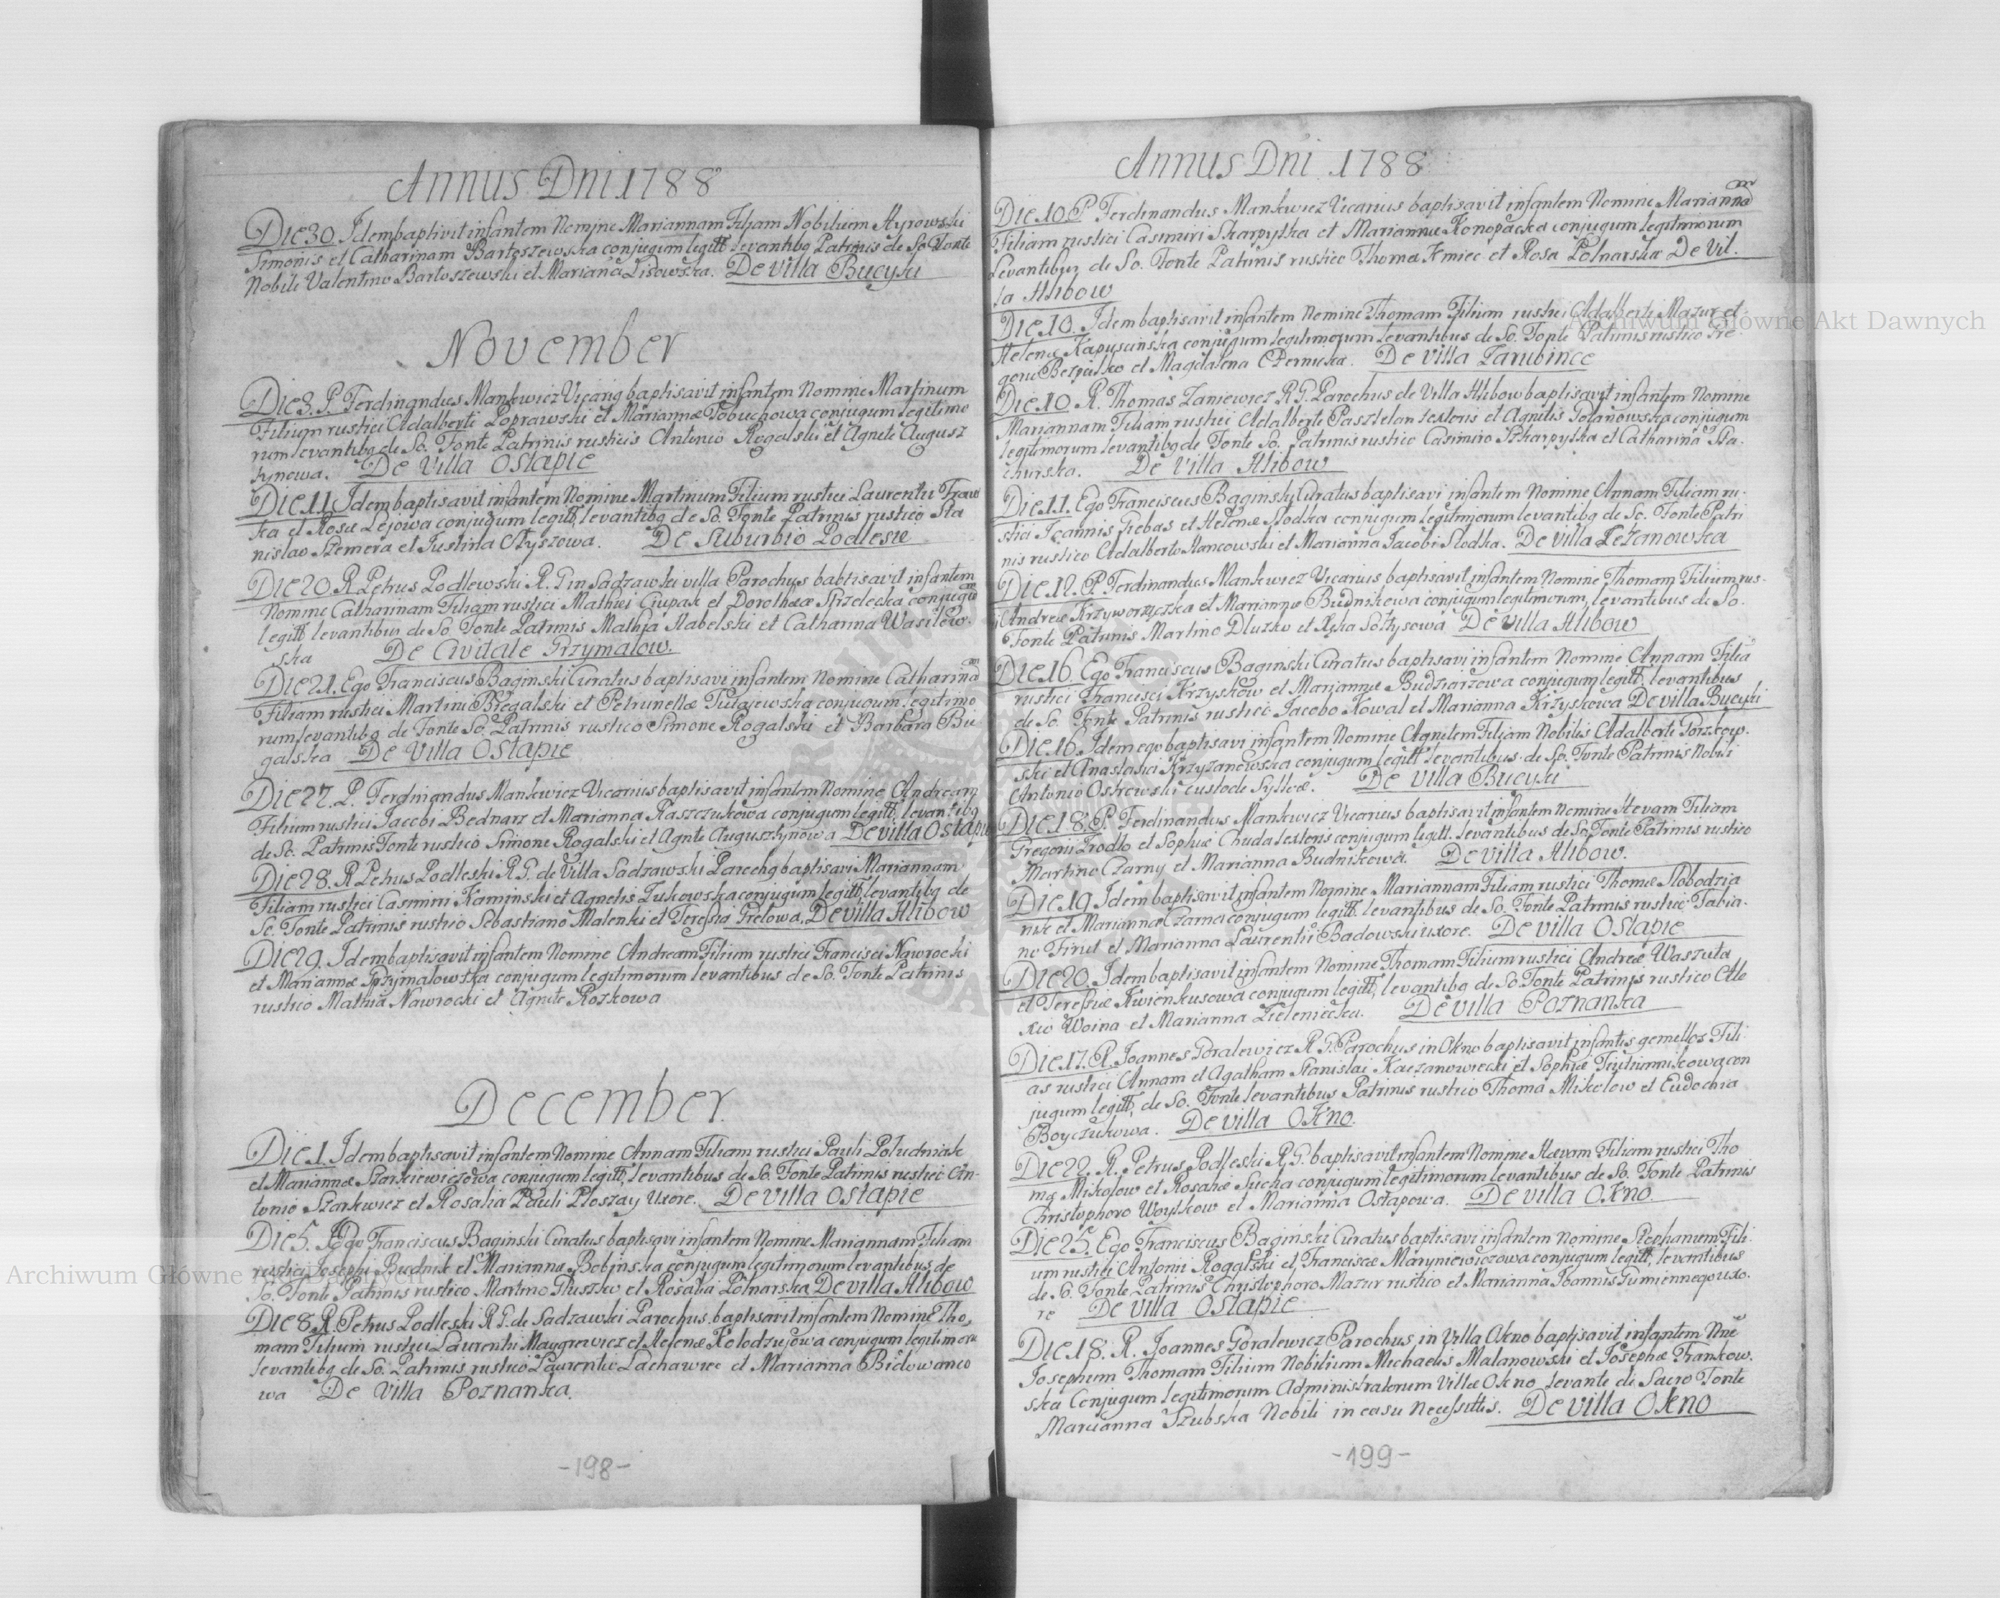 Annus Dni 1788
Die 30. Idem baptivit infantem Nomine Mariannam Filiam Nobilium Hyrowski
Simonis et Catharinam Bartoszewska conjugum legitt levantibq Patrinis de So Fonte
Nobili Valentino Bartoszewski et Marianna Lisowska. De villa Bucyki
November
Die 3. P. Ferdinandus Mankwiez Vicariq baptisavit infantem Nomine Martinum
Filium rustici Adalberti Poprawski et Mariannæ conjugum legitimo
rum levantibq de So. Fonte Patrinis rusticis Antonio Rogalski et Agnete Augusz
tynowa. De Villa Ostapie
Die 11. Idem baptisavit infantem Nomine Martinum Filium rustici Laurentii
ka et Rosæ Lejowa conjugum legitt, levantibq de So. Fonte Patrinis rustico Sta
nislao Szemera et Justina Czyszowa. De Suburbio Podlesie
Die 20. R. Petrus Podlewski R. G. in Sadzawki villa Parochus babtisavit infantem
Nomine Catharinam Filiam rustici Mathei Ciupak et Dorotheæ Strzelecka conjugu
legitt levantibus de So. Fonte Patrinis Mathia Habelski et Catharina Wasilew.
ska De Civitate Grzymalow.
Die 21. Ego Franciscus Baginski Curatus baptisavi infantem Nomine Catharina
Filiam rustici Martini Bregalski et Petrunellæ conjugum legitimo.
rum levantibq de Fonte So. Patrinis rustico Simone Rogalski et Barbara Bu
galska De Villa Ostapie
Die 27. P. Ferdinandus Mankwiez Vicarius baptisavit infantem Nomine Andream
Filium rustici Jacobi Bednarz et Marianna Kaszczukowa conjugum legitt, levantibq
de So. Patrinis Fonte rustico Simone Rogalski et Agnte Augusztynowa De villa Ostapie
Die 28. R Petrus Podleski R. G. de Villa Sadzawski Parochq baptisavi Mariannam
Filiam rustici Casimiri Kaminski et Agnetis Lukowska conjugum legitt levantibq de
So. Fonte Patrinis rustico Sebastiano Malenki et Teressia Grelowa. De villa Hlibow
Die 29. Idem baptisavit infantem Nomine Andream Filium rustici Francisci Nawrocki
et Mariannæ Sprzymalowska conjugum legitimorum levantibus de So. Fonte Patrinis
rustico Mathia Nawrocki et Agnete Rozkowa
December
Die 1. Idem baptisavit infantem Nomine Annam Filiam rustici Pauli Poludniak
et Mariannæ Szarkiewiczowa conjugum legitt, levantibus de So. Fonte Patrinis rustico An
tonio Szarkwiez et Rosalia Pauli Ploszay Uxore. De villa Ostapie
Die 5. Ego Franciscus Baginski Curatus baptisavi infantem Nomine Mariannam Filiam
rustici Josephi Budnik et Marianna Bobinska conjugum legitimorum levantibus de
So. Fonte Patrinis rustico Martino Gluszko et Rosalia Polnarska De villa Hlibow
Die 8. R. Petrus Podleski R G. de Sadzawski Parochus baptisavit infantem Nomine Tho,
mam Filium rustici Laurentii Maygrewiez et Helenæ Kolodziejowa conjugum legitimoru
levantibq de So. Patrinis rustico Laurentio Lachawiec et Marianna Bidowanco
wa De Villa Poznanka.
-198-
Annus Dni 1788
Die 10. P Ferdinandus Mankwiez Vicarius baptisavit infantem Nomine Marianna
Filiam rustici Casimiri Skarpytka et Mariannæ Konopacka conjugum legitimorum
Levantibus de So. Fonte Patrinis rustico Thoma Kmiec et Rosa Polnarska De Vil.
la Hlibow
Die 10. Idem baptisavit infantem Nomine Thomam Filium rustici Adalberti Mazur et
Helenæ Kapuscinska conjugum legitimorum levantibus de So. Fonte Patrinis rustico Gre
gorio et Magdalena. De villa Zarubince
Die 10. R. Thomas Zaniewiez R G. Parochus de Villa Hlibow baptisavit infantem Nomine
Mariannam Filiam rustici Adalberti Pasztelan textoris et Agnetis Polanowska conjugum
legitimorum levantibq de Fonte So. Patrinis rustico Casimiro Szkarpytka et Catharina Sta.
churska. De Villa Hlibow
Die 11. Ego Franciscus Baginski Curatus baptisavi infantem Nomine Annam Filiam ru.
stici Joannis Grebas et Helenæ Slodka conjugum legitimorum levantibq de So. Fonte Patri
nis rustico Adalberto Hancowski et Marianna Jacobi Slodka. De villa Lezanowka
Die 12. P. Ferdinandus Mankwiez Vicarius baptisavit infantem Nomine Thomam Filium rus.
Andreæ Krzyworączka et Mariannæ Budnikowa conjugum legitimorum, levantibus de So.
Fonte Patrinis Martino Dluzko et Soltysowa De villa Hlibow
Die 16. Ego Franciscus Baginski Curatus baptisavi infantem Nomine Annam Filia
rustici Francisci Krzyskow et Mariannæ Budziarzowa conjugum legitt, levantibus
de So. Fonte Patrinis rustico Jacobo Kowal et Marianna Krzyskowa De villa Bucyki
Die 16. Idem ego baptisavi infantem Nomine Agnetem Filiam Nobilis Adalberti Porzkow.
ski et Anastasiæ Krzyzanowska conjugum legitt levantibus de So. Fonte Patrinis Nobili
Antonio Ostrowski custode Sylvæ. De villa Bucyki
Die 18. P. Ferdinandus Mankwiez Vicarius baptisavit infantem Nomine Hevam Filiam
Gregorii Prodlo et Sophiæ Chuda textoris conjugum legitt. levantibus de So. Fonte Patrinis rustico
Martino Czarny et Marianna Budnikowa. De villa Hlibow.
Die 19. Idem baptisavit infantem Nomine Mariannam Filiam rustici Thomæ Slobodzia
nik et Mariannæ Czarna conjugum legitt. levantibus de So. Fonte Patrinis rustico Fabia.
no Firut et Marianna Laurentii Badowski uxore. De villa Ostapie
Die 20. Idem baptisavit infantem Nomine Thomam Filium rustici Andreæ Waszuta
et Teressiæ Kwienkusowa conjugum legitt, levantibq de So. Fonte Patrinis rustico Ale
xio Woina et Marianna Zieleniecka. De villa Poznanka
Die 17. R. Joannes Goralewiez R G. Parochus in Okno baptisavit infantis gemellos Fili
as rustici Annam et Agatham Stanislai Kaczanowiecki et Sophiæ con
jugum legitt, de So. Fonte levantibus Patrinis rustico Thoma Mikolow et Eudochia
Boyczukowa. De villa Okno.
Die 22. R. Petrus Podleski R G. baptisavit infantem Nomine Hevam Filiam rustici Tho
ma Mikolow et Rosaliæ Sucha conjugum legitimorum levantibus de So. Fonte Patrinis
Christophoro Woytkow et Marianna Ostapowa. De villa Okno.
Die 25. Ego Franciscus Baginski Curatus baptisavi infantem Nomine Stephanum Fili.
um rustici Antonii Rogalski et Franciscæ Maryniewiczowa conjugum legitt, levantibus
de So. Fonte Patrinis Christophoro Mazur rustico et Marianna Joannis Gumiennego uxo.
re De villa Ostapie
Die 18. R. Joannes Goralewiez Parochus in Villa Okno baptisavit infantem Nne
Josephum Thomam Filium Nobilium Michaelis Malanowski et Josephæ Frankow.
ska Conjugum legitimorum Administratorum Villæ Okno levante de Sacro Fonte
Marianna Szubska Nobili in casu Necessittis. De villa Okno
-199-
Archiwum Główne Akt Dawnych
Archiwum Główne Akt Dawnych